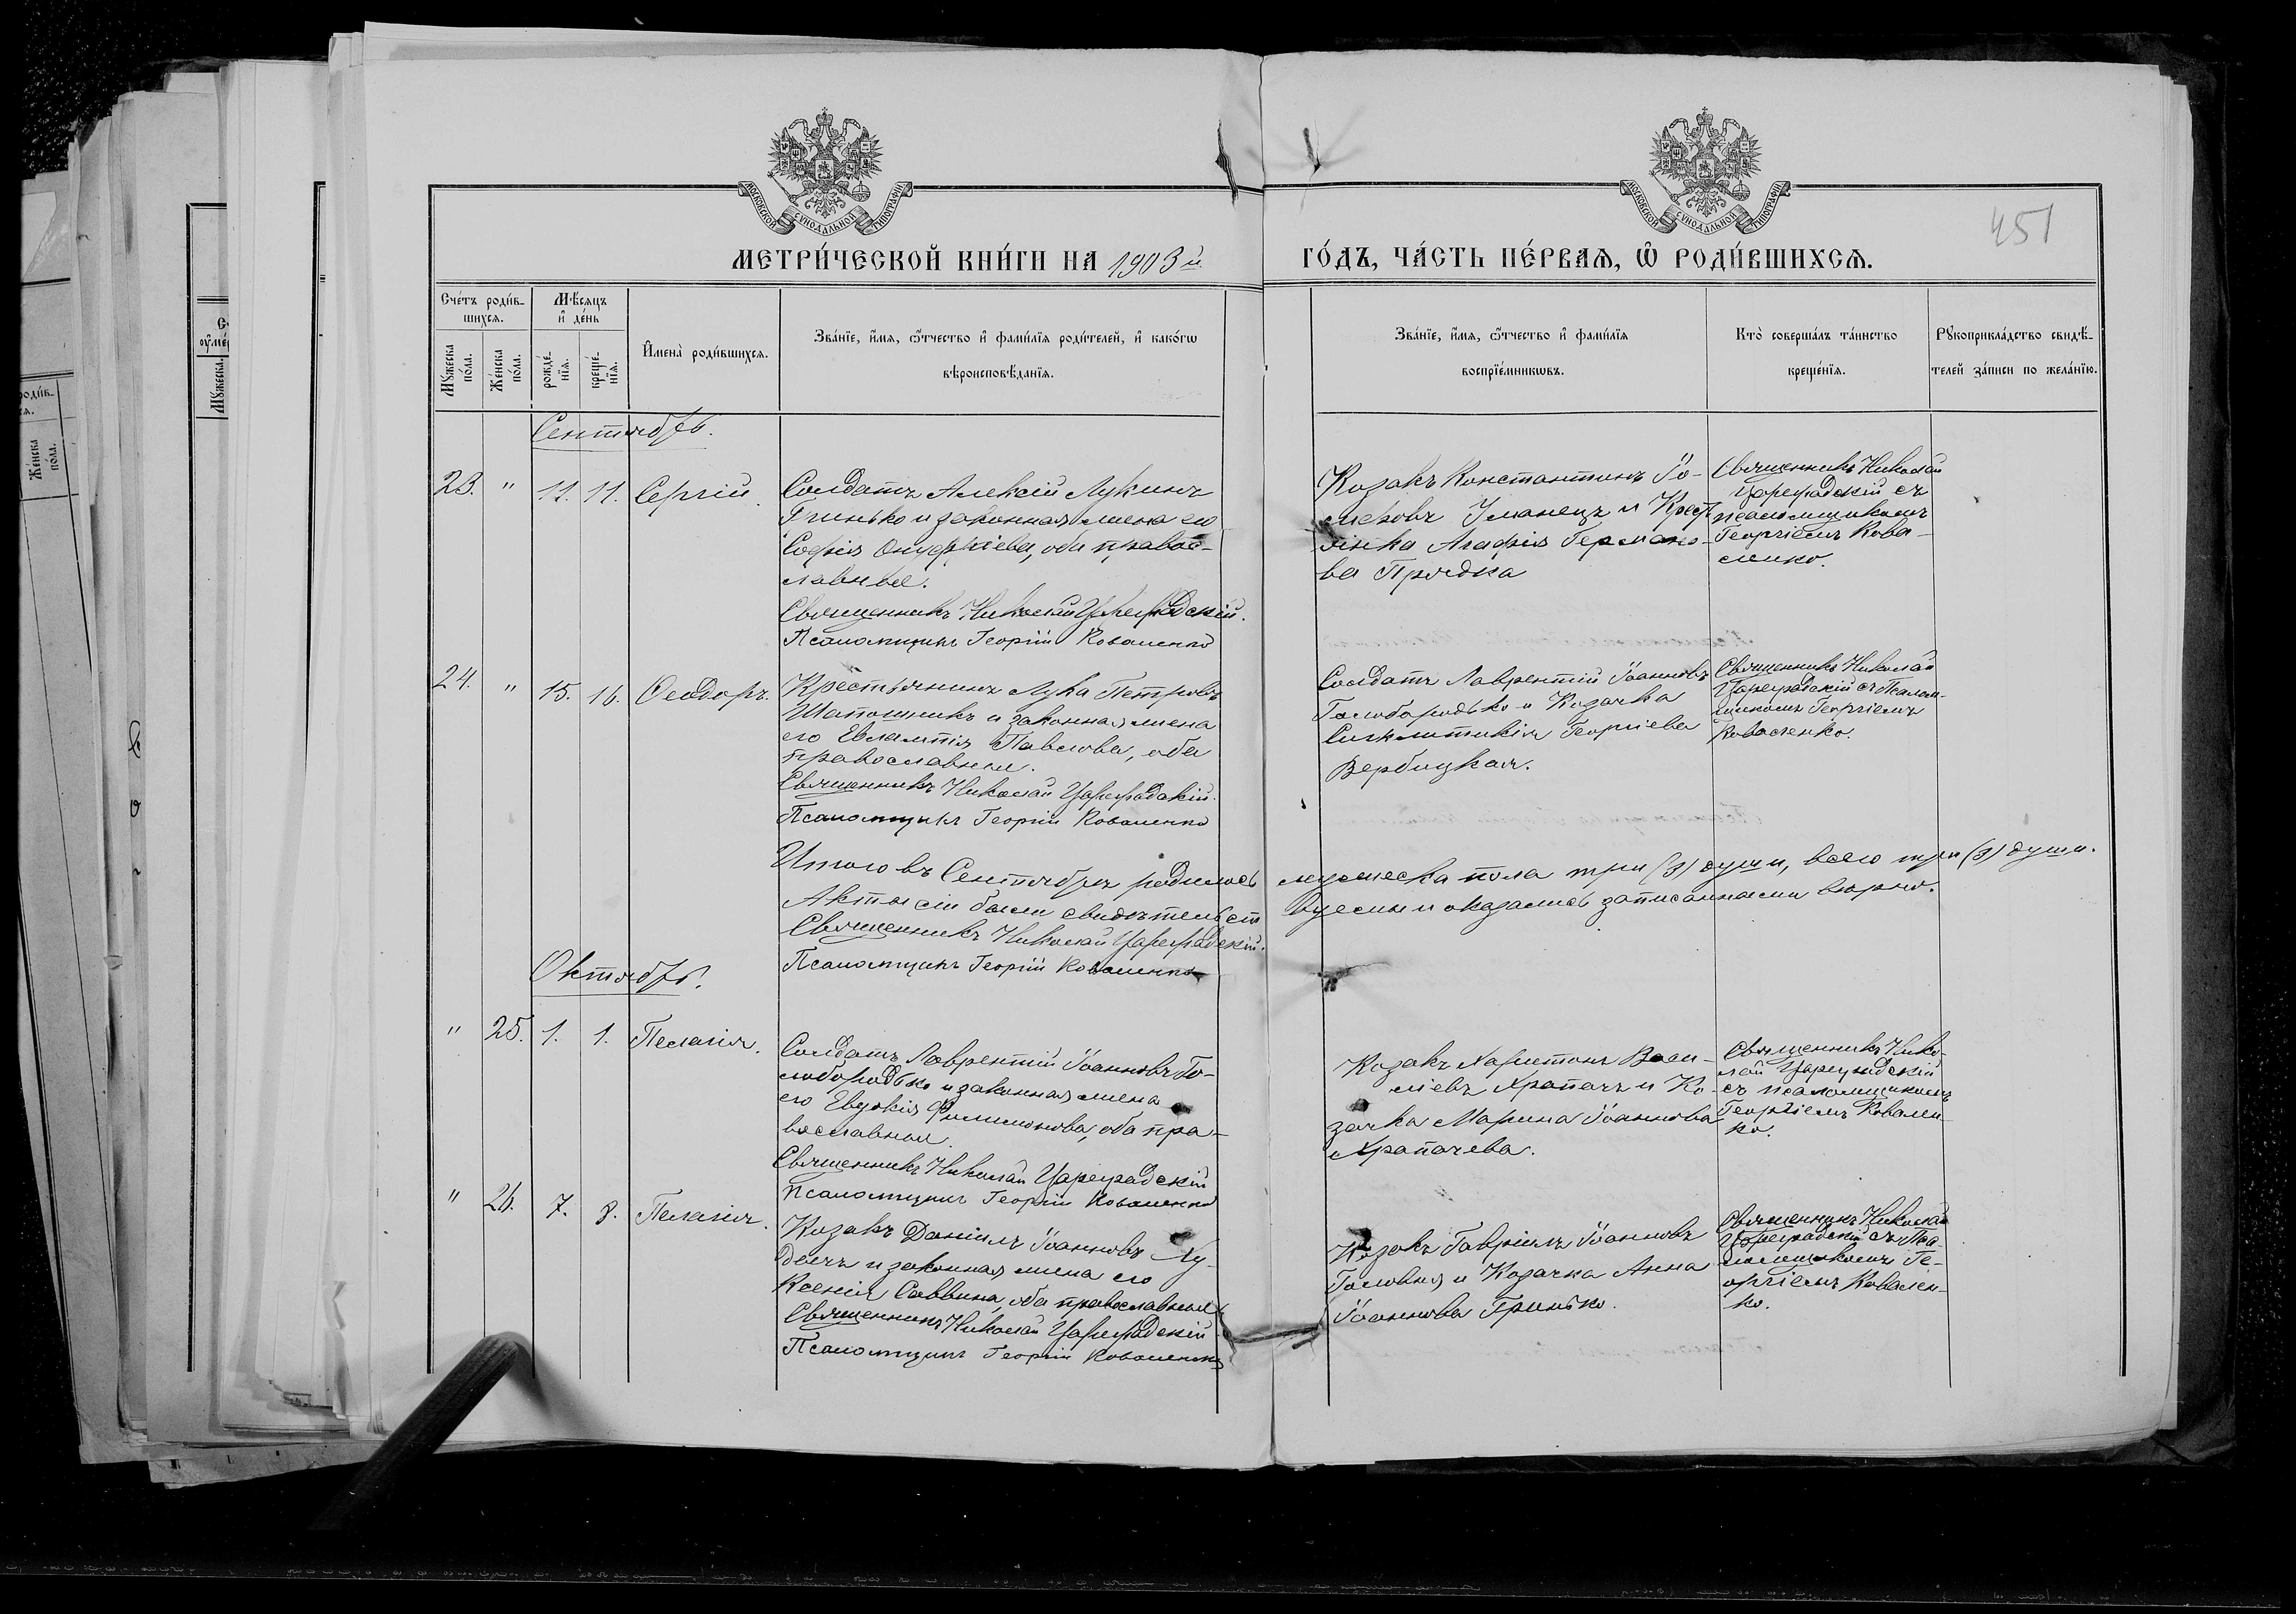 МОСКОВСКОЙ СУНОДАЛЬНОЙ ТИПОГРАФІИ
МОСКОВСКОЙ СУНОДАЛЬНОЙ ТИПОГРАФІИ
451
МЕТРИ́ЧЕСКОЙ КНИ́ГИ НА 1903й
ГО́ДЪ, ЧА́СТЬ ПЕ́РВАѦ, Ѡ РОДИ́ВШИХСѦ.
Сче́тъ роди́в-
шихсѧ.
Мѣ́сѧцъ
и де́нь
Мꙋ́жеска
по́ла.
Же́нска
по́ла.
рожде́-
нїѧ.
креще́-
нїѧ.
Имена̀ роди́вшихсѧ.
Зва́нїе, и́мѧ, ѻ́тчество и фами́лїѧ роди́телей, и како́гѡ
вѣроисповѣ́данїѧ.
Зва́нїе, и́мѧ, ѻ́тчество и фами́лїѧ
воспрїе́мникѡвъ.
Кто̀ соверша́лъ та́инство
креще́нїѧ.
Рꙋкоприкла́дство свидѣ́-
телей за́писи по жела́нїю.
Сентябрь.
23. " 11. 11. Сергій.
Солдатъ Алексій Лукинъ
Гринько и законная жена его
Софія Онуфріева, оба право-
славные.
Священникъ Николай Цареградскій.
Псаломщикъ Георгій Коваленко
Козакъ Константинъ Іо-
Уманецъ и Крест
янка Агафія Германо-
ва Прядка
Священникъ Николай
Цареградскій съ
псаломщикомъ
Георгіемъ Кова-
ленко.
24. " 15. 16. Ѳеодоръ.
Крестьянинъ Лука Петровъ
Шапошникъ и законная жена
его Евлампія Павлова, оба
православные.
Священникъ Николай Цареградскій.
Псаломщикъ Георгій Коваленко
Солдатъ Лаврентій Іоанновъ
Голобородько и Козачка
Синклитикія Георгіева
Вербицкая.
Священникъ Николай
Цареградскій съ Псалом-
щикомъ Георгіемъ
Коваленко.
Итого въ Сентябрѣ родилось мужеска пола три (3) души, всего три (3) души.
Акты сіи были свидѣтельст вуемы и оказались записанными вѣрно.
Священникъ Николай Цареградскій.
Псаломщикъ Георгій Коваленко
Октябрь.
" 25. 1. 1. Пелагія.
Солдатъ Лаврентій Іоанновъ Го-
лобородько и законная жена
его Евдокія Филимонова, оба пра-
вославные.
Священникъ Николай Цареградскій
Псаломщикъ Георгій Коваленко
Козакъ Харитонъ Васи-
ліевъ Храпачъ и Ко-
зачка Марина Іоаннова
Храпачева.
Священникъ Нико-
лай Цареградскій
съ псаломщикомъ
Георгіемъ Ковален-
ко.
" 26. 7. 8. Пелагія.
Козакъ Даніилъ Іоанновъ Ху-
и законная жена его
Ксенія Саввина, оба православные
Священникъ Николай Цареградскій
Псаломщикъ Георгій Коваленко
Козакъ Гавріилъ Іоанновъ
Головня и Козачка Анна
Іоаннова Гринько.
Священникъ Николай
Цареградскій съ Пса-
ломщикомъ Ге-
оргіемъ Ковален-
ко.